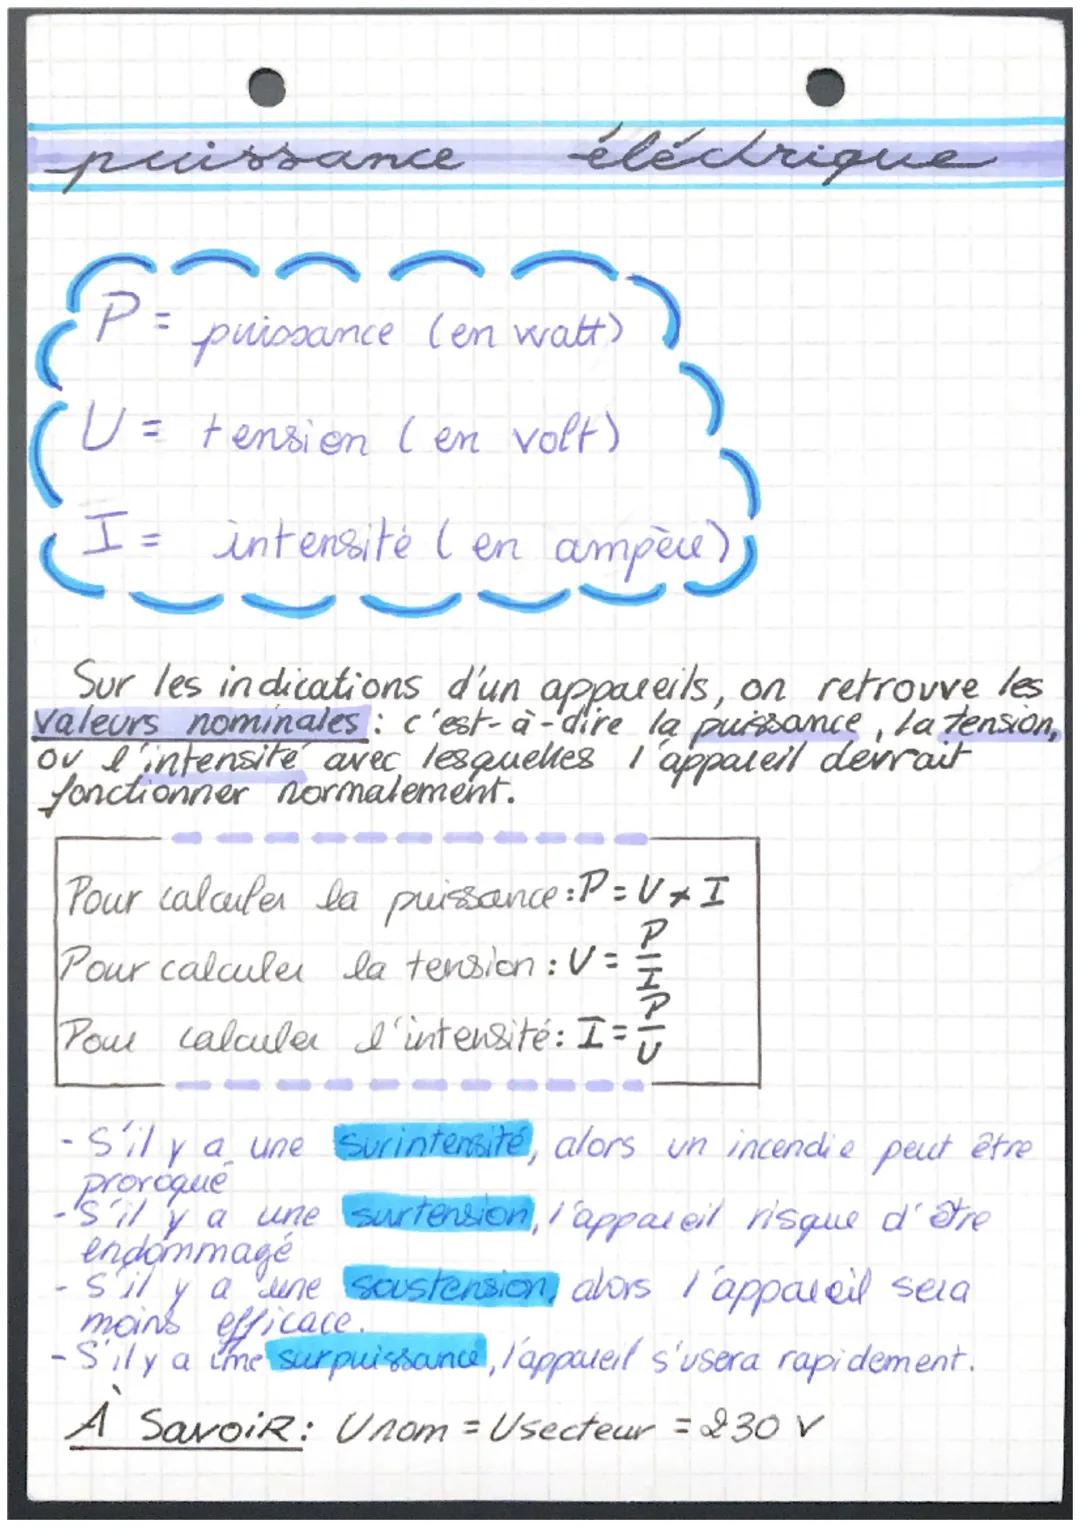 puissance éléctrique
P = puissance (en watt)
U = tension (en volt)
I = intensité (en ampère)
Sur les indications d'un appareils, on retrouve les
valeurs nominales : c'est-à-dire la puissance, la tension,
ou l'intensité avec lesquelles l'appareil devrait
fonctionner normalement.
Pour calculer la puissance : P = U × I
Pour calculer la tension : U = P/I
Pour calculer l'intensité : I = P/U
- S'il y a une surintensité, alors un incendie peut être
provoqué
- S'il y a une surtension, l'appareil risque d'être
endommagé
- S'il y a une soustension, alors l'appareil sera
moins efficace.
- S'il y a une surpuissance, l'appareil s'usera rapidement.
À SavoiR : Unom = Usecteur = 230 V